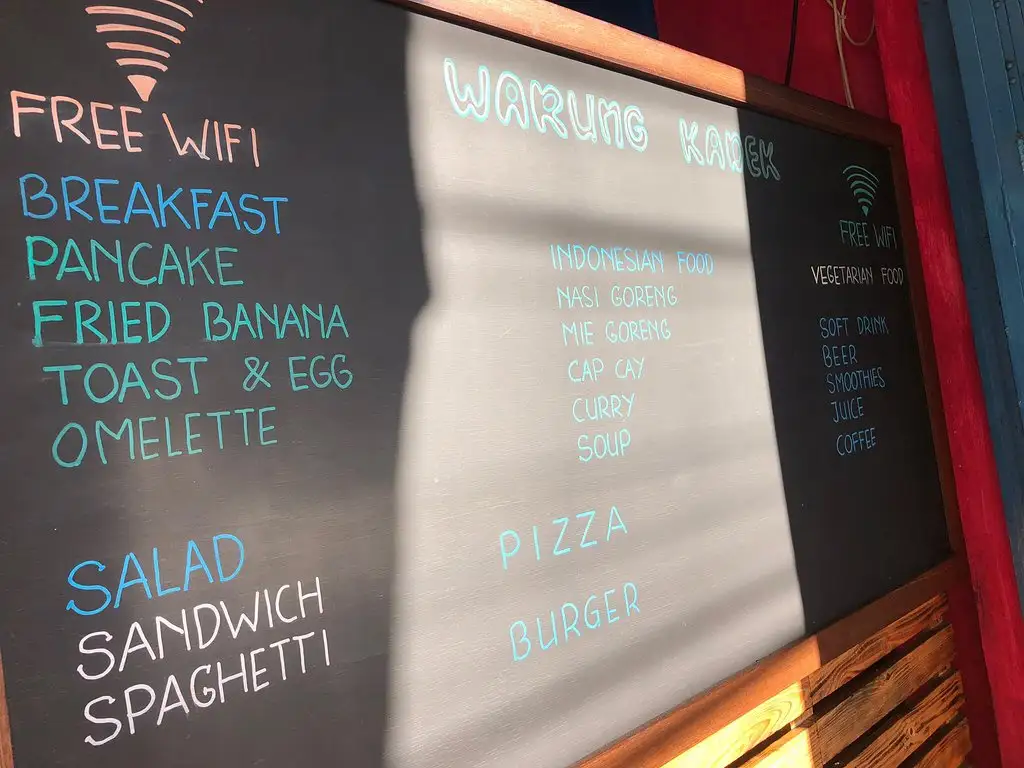 FREE WIFI
BREAKFAST
PANCAKE
FRIED BANANA
TOAST & EGG
OMELETTE
SALAD
SANDWICH
SPAGHETTI
WARUNG KADEK
INDONESIAN FOOD
NASI GORENG
MIE GORENG
CAP CAY
CURRY
SOUP
PIZZA
BURGER
FREE WIFI
VEGETARIAN FOOD
SOFT DRINK
BEER
SMOOTHIES
JUICE
COFFEE